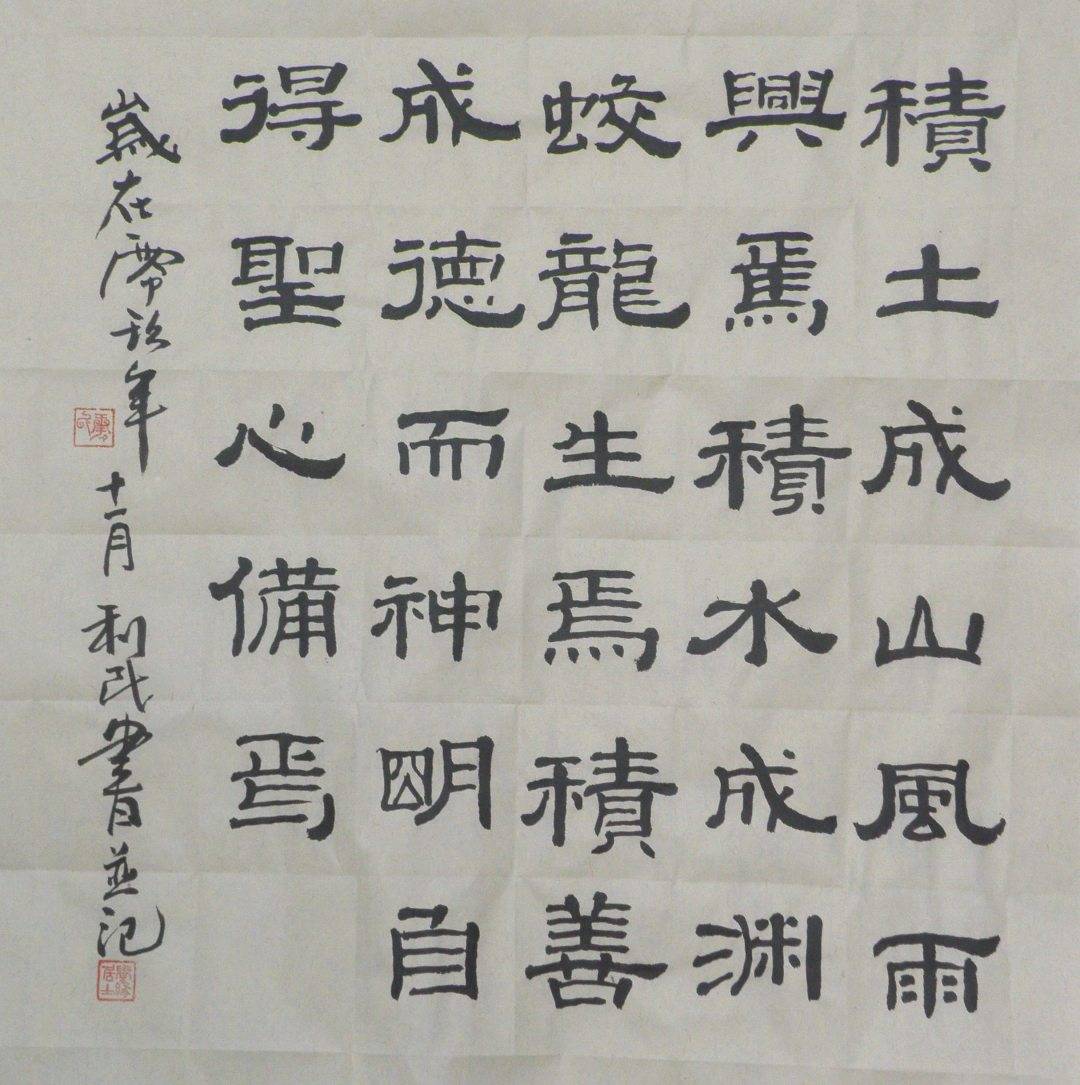 積土成山風雨
興焉積水成渊
蛟龍生焉積善
成德而神明自
得聖心備焉
歲在 年十一月利民書首並记